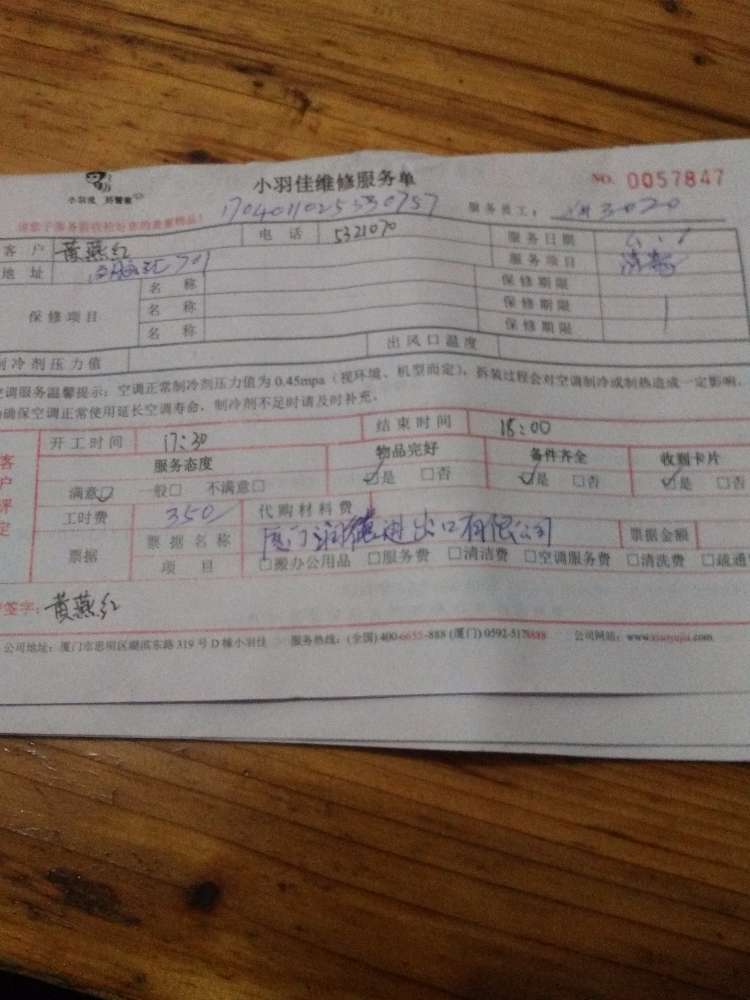 小羽佳维修服务单
NO. 0057847
小羽佳 好管家
1704011025330757
服务员工： 3020
客 户 黄燕红 电 话 5321070 服务日期
地 址 701 服务项目 清洗
保修项目 名 称 保修期限
名 称 保修期限
名 称 保修期限
制冷剂压力值 出风口温度
空调服务温馨提示：空调正常制冷剂压力值为 0.45mpa（视环境、机型而定），拆装过程会对空调制冷或制热造成一定影响，
确保空调正常使用延长空调寿命，制冷剂不足时请及时补充。
客户评定
开工时间 17:30 结束时间 18:00
服务态度 物品完好 备件齐全 收到卡片
满意☑ 一般□ 不满意□ ☑是 □否 ☑是 □否 ☑是 □否
工时费 350 代购材料费
票据 票据名称 厦门 进出口有限公司 票据金额
项 目 □搬办公用品 □服务费 □清洁费 □空调服务费 □清洗费 □疏通
签字：黄燕红
公司地址：厦门市思明区湖滨东路 319 号 D 栋小羽佳 服务热线：(全国) 400-6655-888 (厦门) 0592-5178888 公司网站：www.xiaoyujia.com